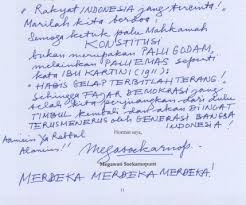 " Rakyat INDONESIA yang tercinta!
Marilah kita berdoa!
Semoga ketuk palu Mahkamah
KONSTITUSI
bukan merupakan PALU GODAM,
melainkan PALU EMAS seperti
kata IBU KARTINI (1911):
"HABIS GELAP TERBITLAH TERANG!
Sehingga FAJAR DEMOKRASI yang
telah kita perjuangkan dari dulu
TIMBUL kembali dan akan DIINGAT
TERUS MENERUS oleh GENERASI BANGSA
INDONESIA!
Aamiin Ya Rabbal
Alamin!!
Hormat saya,
Megawati Soekarnoputri
MERDEKA MERDEKA MERDEKA!